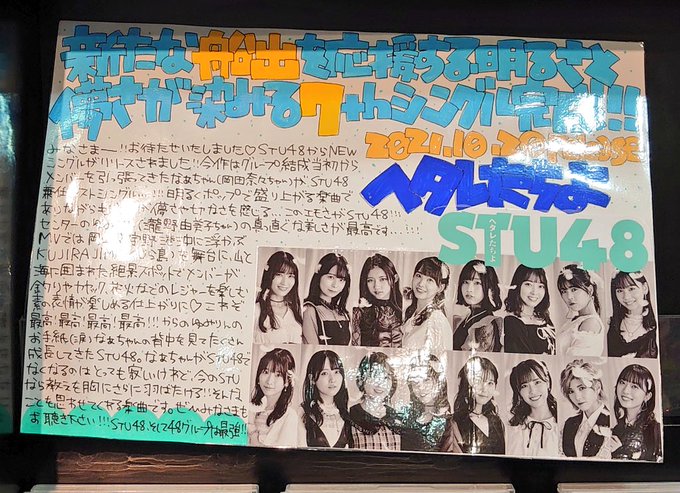 新たな船出を応援する明るさと
儚さが染みる7thシングル完成!!
2021.10.20 RELEASE
ヘタレたちよ
STU48
ヘタレたちよ
みなさまー!!お待たせいたしました♡STU48からNEW
シングルがリリースされました!!今作はグループ結成当初から
メンバーを引っ張ってきたなぁちゃん(岡田奈々ちゃん)がSTU48
兼任ラストシングル…!!!明るくポップで盛り上がる楽曲で
ありながらも儚さやせつなさを感じる…このエモさがSTU48!!!
センターのゆみりん(瀧野由美子ちゃん)の真っ直ぐな美しさが最高です…!!!
MVでは
KUJIRAJIMA を舞台に山と
海に囲まれた絶景スポットでメンバーが
釣りやカヤック、花火などのレジャーを楽しむ
素の表情が楽しめる仕上がりに♡これぞ
最高!最高!最高!最高!!!からのゆみりんの
お手紙(涙)なぁちゃんの背中を見てたくさん
成長してきたSTU48。なぁちゃんがSTU48で
なくなるのはとっても寂しいけれど、今のSTU
なら教えを胸にさらに羽ばたける!!そんな
ことも思わせてくれる楽曲です。ぜひみなさまも
お聴き下さい!!!STU48、そして48グループは最強!!